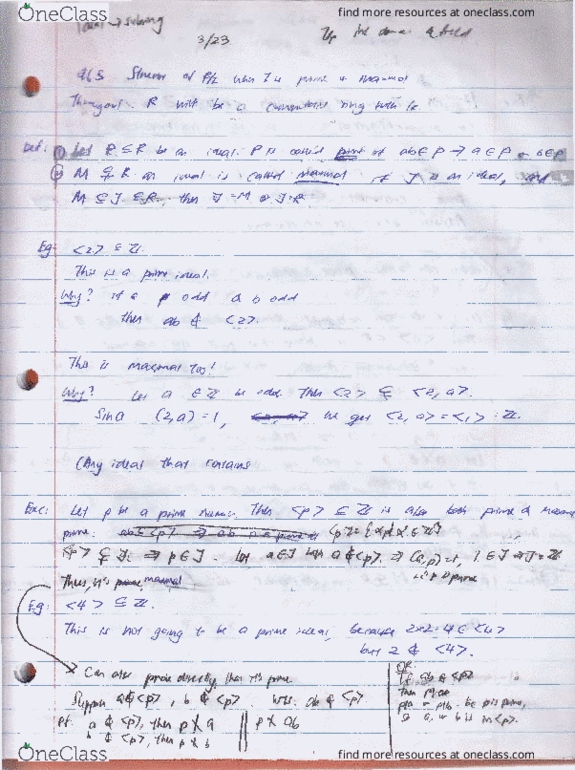 OneClass
find more resources at oneclass.com
Ideal → subring
3/23
Structure of R/I when I is prime & maximal
Throughout R will be a commutative ring with 1R
Def: ① Let P ⊆ R be an ideal. P is called prime if ab∈P → a∈P or b∈P
② M ⊊ R an ideal is called maximal if J is an ideal, and
M ⊆ J ⊆ R, then J=M or J=R.
Eg: <2> ⊆ ℤ.
This is a prime ideal.
Why? if a odd & b odd
then ab ∉ <2>.
This is maximal too!
Why? Let a ∈ ℤ be odd. Then <2> ⊊ <2,a>.
Since (2,a) = 1, we get <2,a> = <1> = ℤ.
(Any ideal that contains
Exc: Let p be a prime number. Then <p> ⊆ ℤ is also both prime & maximal
prime:
<p> ⊊ J ⇒ p∈J. Let a∈J with a∉<p>. ⇒ (a,p)=1, 1∈J ⇒ J=ℤ
Thus, it's prime, maximal
Eg: <4> ⊆ ℤ.
This is not going to be a prime ideal, because 2×2=4 ∈ <4>
but 2 ∉ <4>.
* Can also prove directly that it's prime
Suppose a∉<p>, b ∉ <p>. WTS: ab ∉ <p>
pf: a ∉ <p>, then p ∤ a
b ∉ <p>, then p ∤ b
p ∤ ab
OR
If ab ∈ <p>
then p|ab
p|a or p|b bc p is prime,
so a, or b is in <p>.
OneClass
find more resources at oneclass.com